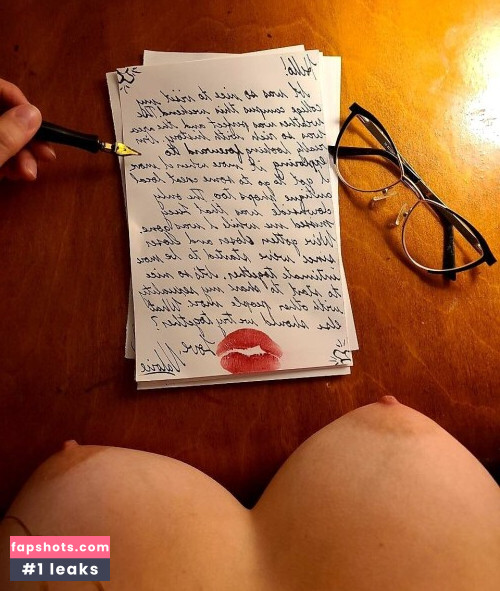 Hello!
It was so nice to visit my
college campus this weekend. The
weather was perfect and the area
was so rich with history. I am
really looking foreward to
exploring it more when I
I got to go to some neat local
antique shops too. The only
downside was that
missed me while I was gone.
We've gotten closer and closer
since we've started to be more
intimate together. It's so nice
to start to share my sexuality
with other people more. What
else should we try together?
Love,
fapshots.com
#1 leaks